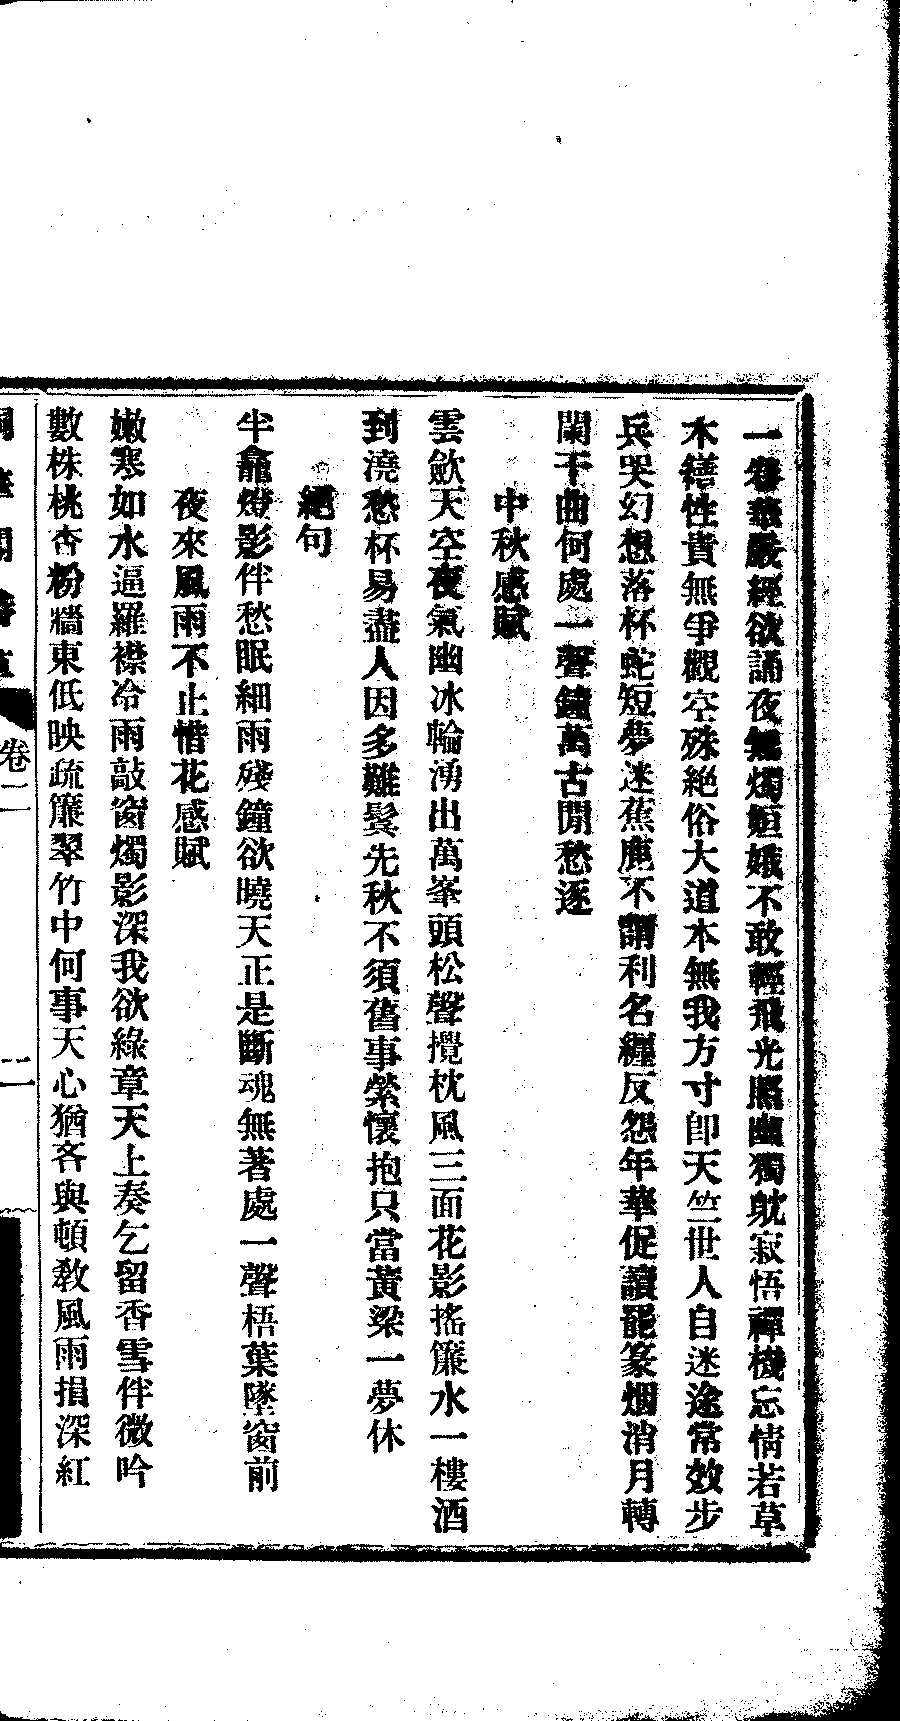 一卷華嚴經欲誦夜無燭姮娥不敢輕飛光照幽獨躭寂悟禪機忘情若草
木繕性貴無爭觀空殊絶俗大道本無我方寸卽天竺世人自迷途常效步
兵哭幻想落杯蛇短夢迷蕉鹿不謂利名纏反怨年華促讀罷篆烟消月轉
闌干曲何處一聲鐘萬古閒愁逐
中秋感賦
雲歛天空夜氣幽冰輪湧出萬峯頭松聲攪枕風三面花影搖簾水一樓酒
到澆愁杯易盡人因多難鬓先秋不須舊事縈懷抱只當黃粱一夢休
絕句
半龕燈影伴愁眠細雨殘鐘欲曉天正是斷魂無著處一聲梧葉墜窗前
夜來風雨不止惜花感賦
嫩寒如水逼羅襟冷雨敲窗燭影深我欲綠章天上奏乞留香雪伴微吟
數株桃杏粉牆東低映疏簾翠竹中何事天心猶吝與頓敎風雨損深紅
卷二
二